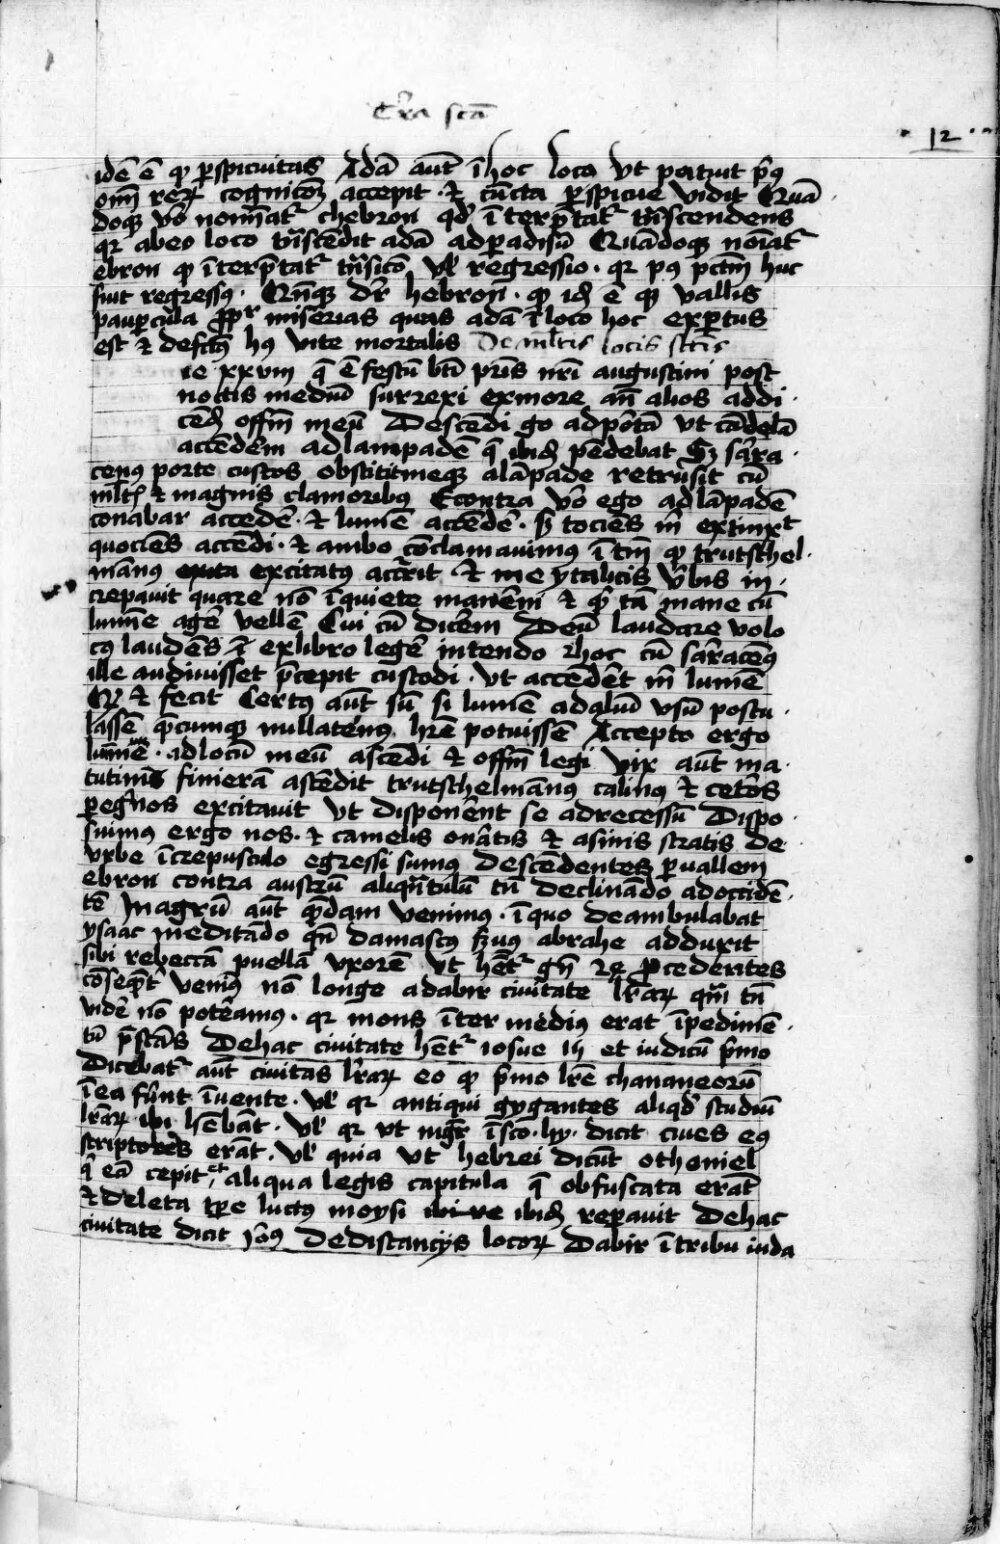 Terra sctā
· 12 ·
idē ē qͥ perspicuitas Adā aūt ī hoc loco vt patuit pͥus
om̄ rerꝝ cognicōꝫ accepit · et cūcta perspicue vidit Quā
doqꝫ vo nomīatr chebron qd ī terptatr trāscendens
qr ab eo loco trāscēdit adā ad paradisū Quādoqꝫ noīatr
ebron qͥ ī terptatr trāsicō vl regressio · qr pꝰ pctm̄ huc
fuit regressꝰ · Qn̄qꝫ dr hebron · qͥ idē ē qͥ vallis
paupcula ppr miserias quas adā ī loco hoc expertus
est et defectꝰ hꝰ vite mortalis De ml̄tis locis sctīs
ie xxviii q̄ ē festū bti pr̄is nr̄i augustini post
noctis mediū surrexi ex more an̄ alios addi
cēd offm̄ meū Descēdi go ad portā vt cādelā
accenderem ad lampadē q̄ ibidē pēdebat Sꝫ sarra
cenꝰ porte custos obstitit meqꝫ a lāpade retrusit cū
ml̄tis et magnis clamoribꝰ Econtra vo ego ad lāpadē
conabar accedē · et lumē accēdē · sꝫ tociēs m̄ extinxt
quociēs accēdi · et ambo cōclamauimꝰ ī tm̄ qͥ trutschel
mānus excitatꝰ accurrit · et me ytalicis vbis in
crepauit quare nō ī quiete manerem et qr tā mane cū
lumīe agere vellē Cui cū dicerem Deū laudare volo
cꝰ laudēs ī ex libro legē intendo Et hoc cū sarracenꝰ
ille audiuisset pcepit custodi · vt accenderet m̄ lumē
Qd et fecit Certꝰ aūt sū si lumē ad aliū vsū postu
lassē qcumqꝫ nullatenꝰ hr̄e potuissē Accepto ergo
lumīe · ad locū meū ascēdi et offm̄ legi vix aūt ma
tutinas finierā ascēdit trutschelmānus calinꝰ et ceteros
peg̃nos excitauit vt disponerent se ad recessū Dispo
suimus ergo nos · et camelis onatis et asinis stratis de
vrbe ī crepusculo egressi sumꝰ descēdentes p vallem
ebron contra austrū aliqn̄tulū tn̄ declinādo ad occidē
tē In agrū aūt qdam venimus · ī quo deambulabat
ysaac meditādo qn̄ damascꝰ suꝰ abrahe adduxit
sibi rebeccā puellā vxorē vt hētr gn̄ 24 Pcedentes
cōseqnter venimꝰ nō longe a dabir ciuitate lrarꝝ quā tn̄
vidē nō poteramꝰ · qr mons īter medius erat īpedimē
tū prestās De hac ciuitate hētr iosue 15 et iudicū pmo
Dicebatr aūt ciuitas lrarꝝ eo qͥ pmo lrē chananeorū
ī ea fuerūt īuente · vl qr antiqui gygantes aliqd studiū
lrarꝝ ibi hēbāt · vl qr vt mgr̄ ī sco · hy · dicit ciues eꝰ
scriptores erāt · vl quia vt hebrei dicūt otheniel
qͥ eā cepit et aliqua legis capitula q̄ obfuscata erāt
et deleta tpe luctꝰ moysi ibidē reperauit De hac
ciuitate dicit Jerōꝰ De distancijs locorꝝ Dabir ī tribu iuda